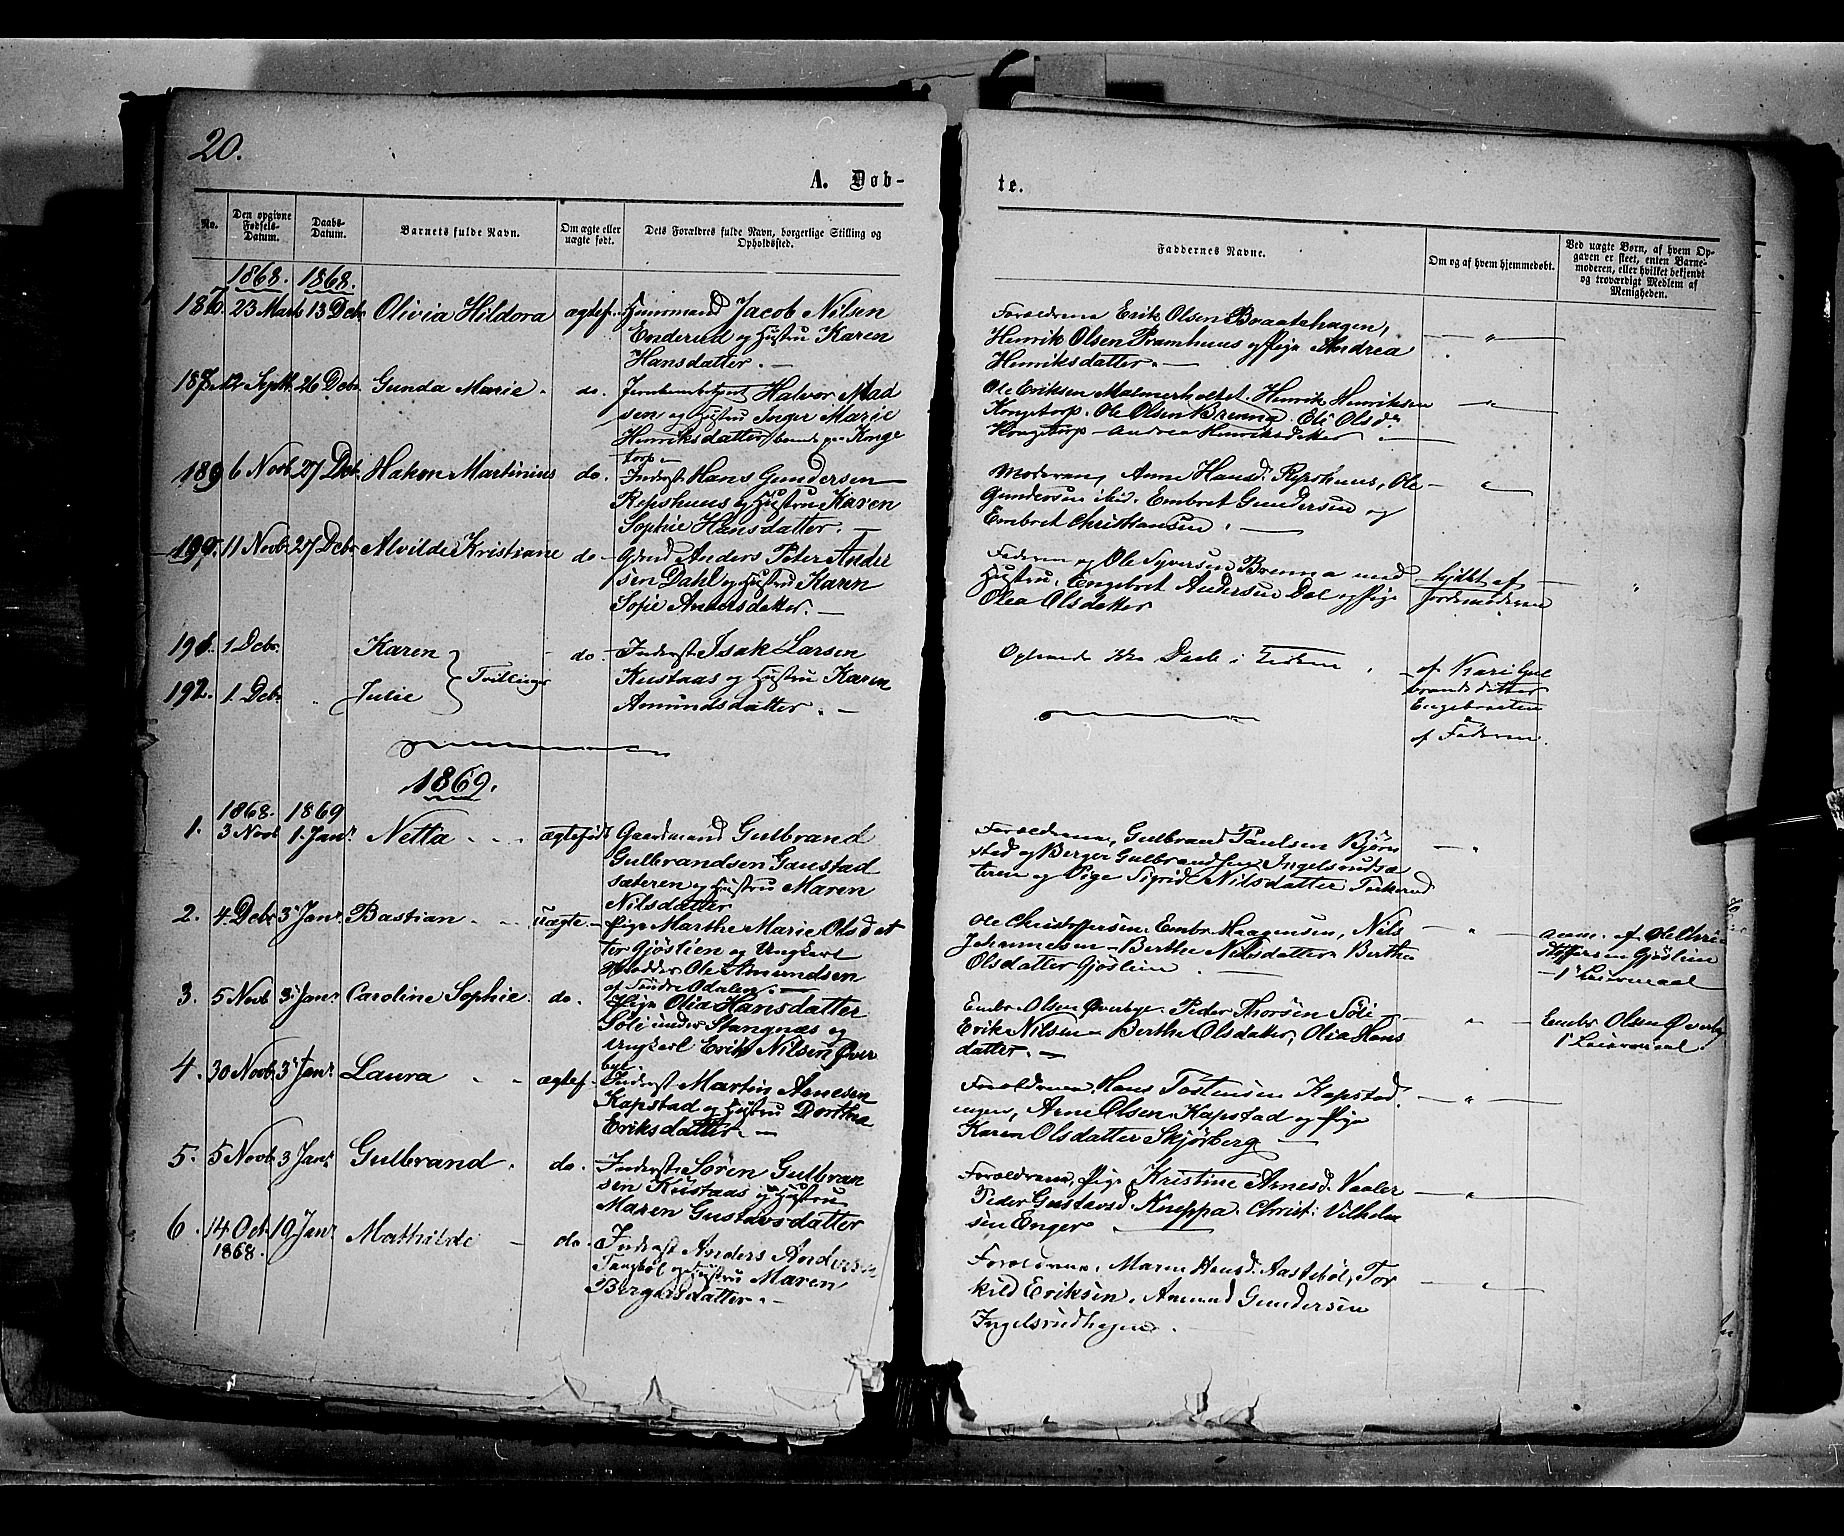 20.
A. Døb-
te.
No.
Den opgivne Fødsels-Datum.
Daabs-Datum.
Barnets fulde Navn.
Om ægte eller uægte født.
Dets Forældres fulde Navn, borgerlige Stilling og Opholdssted.
Faddernes Navne.
Om og af hvem hjemmedøbt.
Ved uægte Børn, af hvem Opgaven er skeet, enten Barnemoderen, eller hvilket bekjendt og troværdigt Medlem af Menigheden.
1868. 1868.
23 Marts 13 Debr Olivia Hildora ægtef. Huusmand Jacob Nilsen
Enderud og Hustru Karen
Hansdatter. —
Forældrene Erik Olsen Braatehagen,
Henrik Olsen Framhuus og Pige Andrea
Henriksdatter. — "
12 Septb. 26 Debr. Gunda Marie do. Halvor Mad
sen og Hustru Inger Marie
Henriksdatter Konge
torp —
Ole Eriksen Malmerholtet. Henrik Henriksen
Kongetorp. Ole Olsen Brenna. Oli Olsdr
Kongetorp — Andrea Henriksdatter "
189 6 Novb. 27 Dbr. Hakon Martinius do. Inderst Hans Gundersen
Repshuus og Hustru Karen
Sophie Hansdatter. —
Moderen, Anne Hansd. Repshuus, Ole
Gundersen ibid. Embret Gundersen og
Embret Christiansen. — "
190. 11 Novbr 27 Debr Alvilde Kristiane do — Gmd Anders Peter Ander
sen Dahl og Hustru Karen
Sofie Andersdatter. —
Faderen og Ole Syversen Brenna med
Hustru. Engebret Andersen Dal og Pige
Olea Olsdatter
af
Jordmoderen
191. 1 Debr. Karen do. Inderst Isak Larsen
Kustaas og Hustru Karen
Amundsdatter. —
192. 1. Debr " Julie
Tvillinger
ikke Daab i Kirken
af Kari Gul
brandsdatter
Engebraaten
af Faderen.
1869.
1868. 1869
1. 3 Novb 1. Janr Netta ægtefødt Gaardmand Gulbrand
Gulbrandsen Gaustad
sæteren og Hustru Maren
Nilsdatter
Forældrene, Gulbrand Paulsen Bjørn
sted og Berger Gulbrandsen Ingelsrudsæ
teren og Pige Sigrid Nilsdatter "
2. 4. Debr 3 Janr. Bastian uægte — Pige Marthe Marie Olsdat
ter Gjøslien og Ungkarl
Ole Amundsen
af Søndre Odalen. —
Ole Christoffersen. Embr. Haagensen, Nils
Johannesen — Berthe Nilsdatter — Berthe
Olsdatter Gjøslien "
anm. af Ole Chri
stoffersen Gjøslien
— 1ste Leiermaal
3. 5 Novb 3 Janr Caroline Sophie do. Pige Olia Hansdatter
Soli under Stangnæs og
Ungkarl Erik Nilsen Over
bye.
Embr Olsen Overbye. Peder Thorsen Soli —
Erik Nilsen — Berthe Olsdatter, Olia Hans
datter. — "
Embr Olsen Overby
1ste Leiermaal
4. 30 Novb. 3 Janr. Laura ægtef. Inderst Martin Arnesen
Kapstad og Hustru Dorthea
Eriksdatter. —
Forældrene, Hans Tostensen Kapstad
engen, Arne Olsen Kapstad og Pige
Karen Olsdatter Skjørberg — "
5. 5 Novb. 3 Janr. Gulbrand. do. Inderst Søren Gulbran
sen Kustaas og Hustru
Maren Gustavsdatter
Forældrene, Pige Kristine Arnesd. Vaaler
Peder Gustavsd. Knappa. Christ. Vilhelm
sen Enger — "
6. 14 Octb 19 Janr Mathilde — do. Inderst Anders Andersen
1868.
Tangbøl og Hustru Maren
Bergersdatter. —
Forældrene, Maren Hansd. Aastebøl, Tor
kild Eriksen. Amund Gundersen
Ingelsrudhagen. "